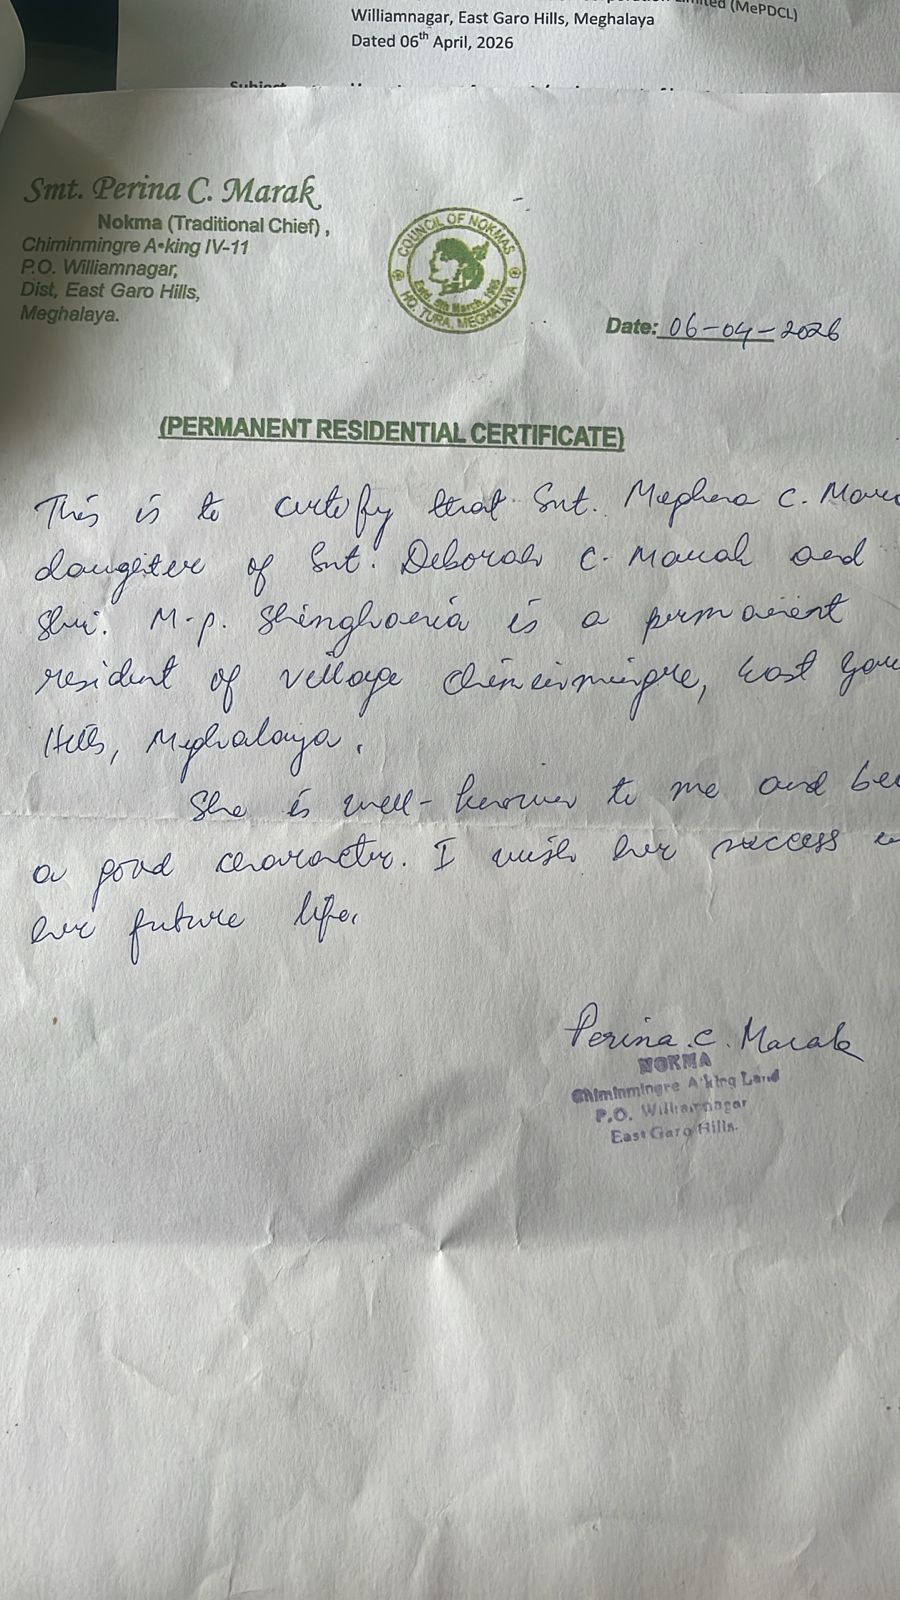 Limited (MePDCL)
Williamnagar, East Garo Hills, Meghalaya
Dated 06th April, 2026
Subject
Smt. Perina C. Marak
Nokma (Traditional Chief),
Chiminmingre A•king IV-11
P.O. Williamnagar,
Dist, East Garo Hills,
Meghalaya.
COUNCIL OF NOKMAS
HQ. TURA, MEGHALAYA
Date: 06-04-2026
(PERMANENT RESIDENTIAL CERTIFICATE)
This is to certify that Smt. Mephera C.
daughter of Smt. Deborah C. Marak and
Shri. M.p. is a permanent
resident of village Chiminmingre, East
Hills, Meghalaya.
She is well-known to me and
a good character. I wish her success
her future life.
Perina.C.Marak
NOKMA
Chiminmingre A'king Land
P.O. Williamnagar
East Garo Hills.